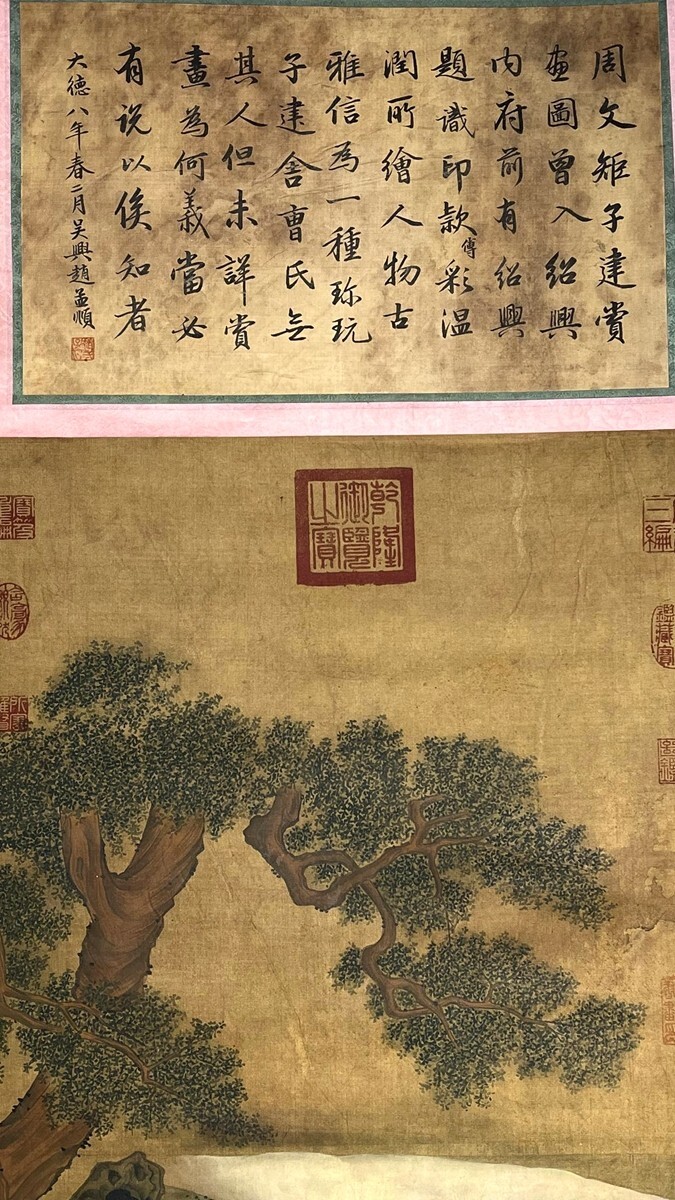 周文矩子建賞
畫圖曾入紹興
内府前有紹興
題識印款傅彩温
潤所繪人物古
雅信為一種珎玩
子建舍曹氏無
其人但未詳賞
畫為何義當必
有説以俟知者
大德八年春二月吴興趙孟頫
乾隆
御覽
之寶
三編
鑑藏寶